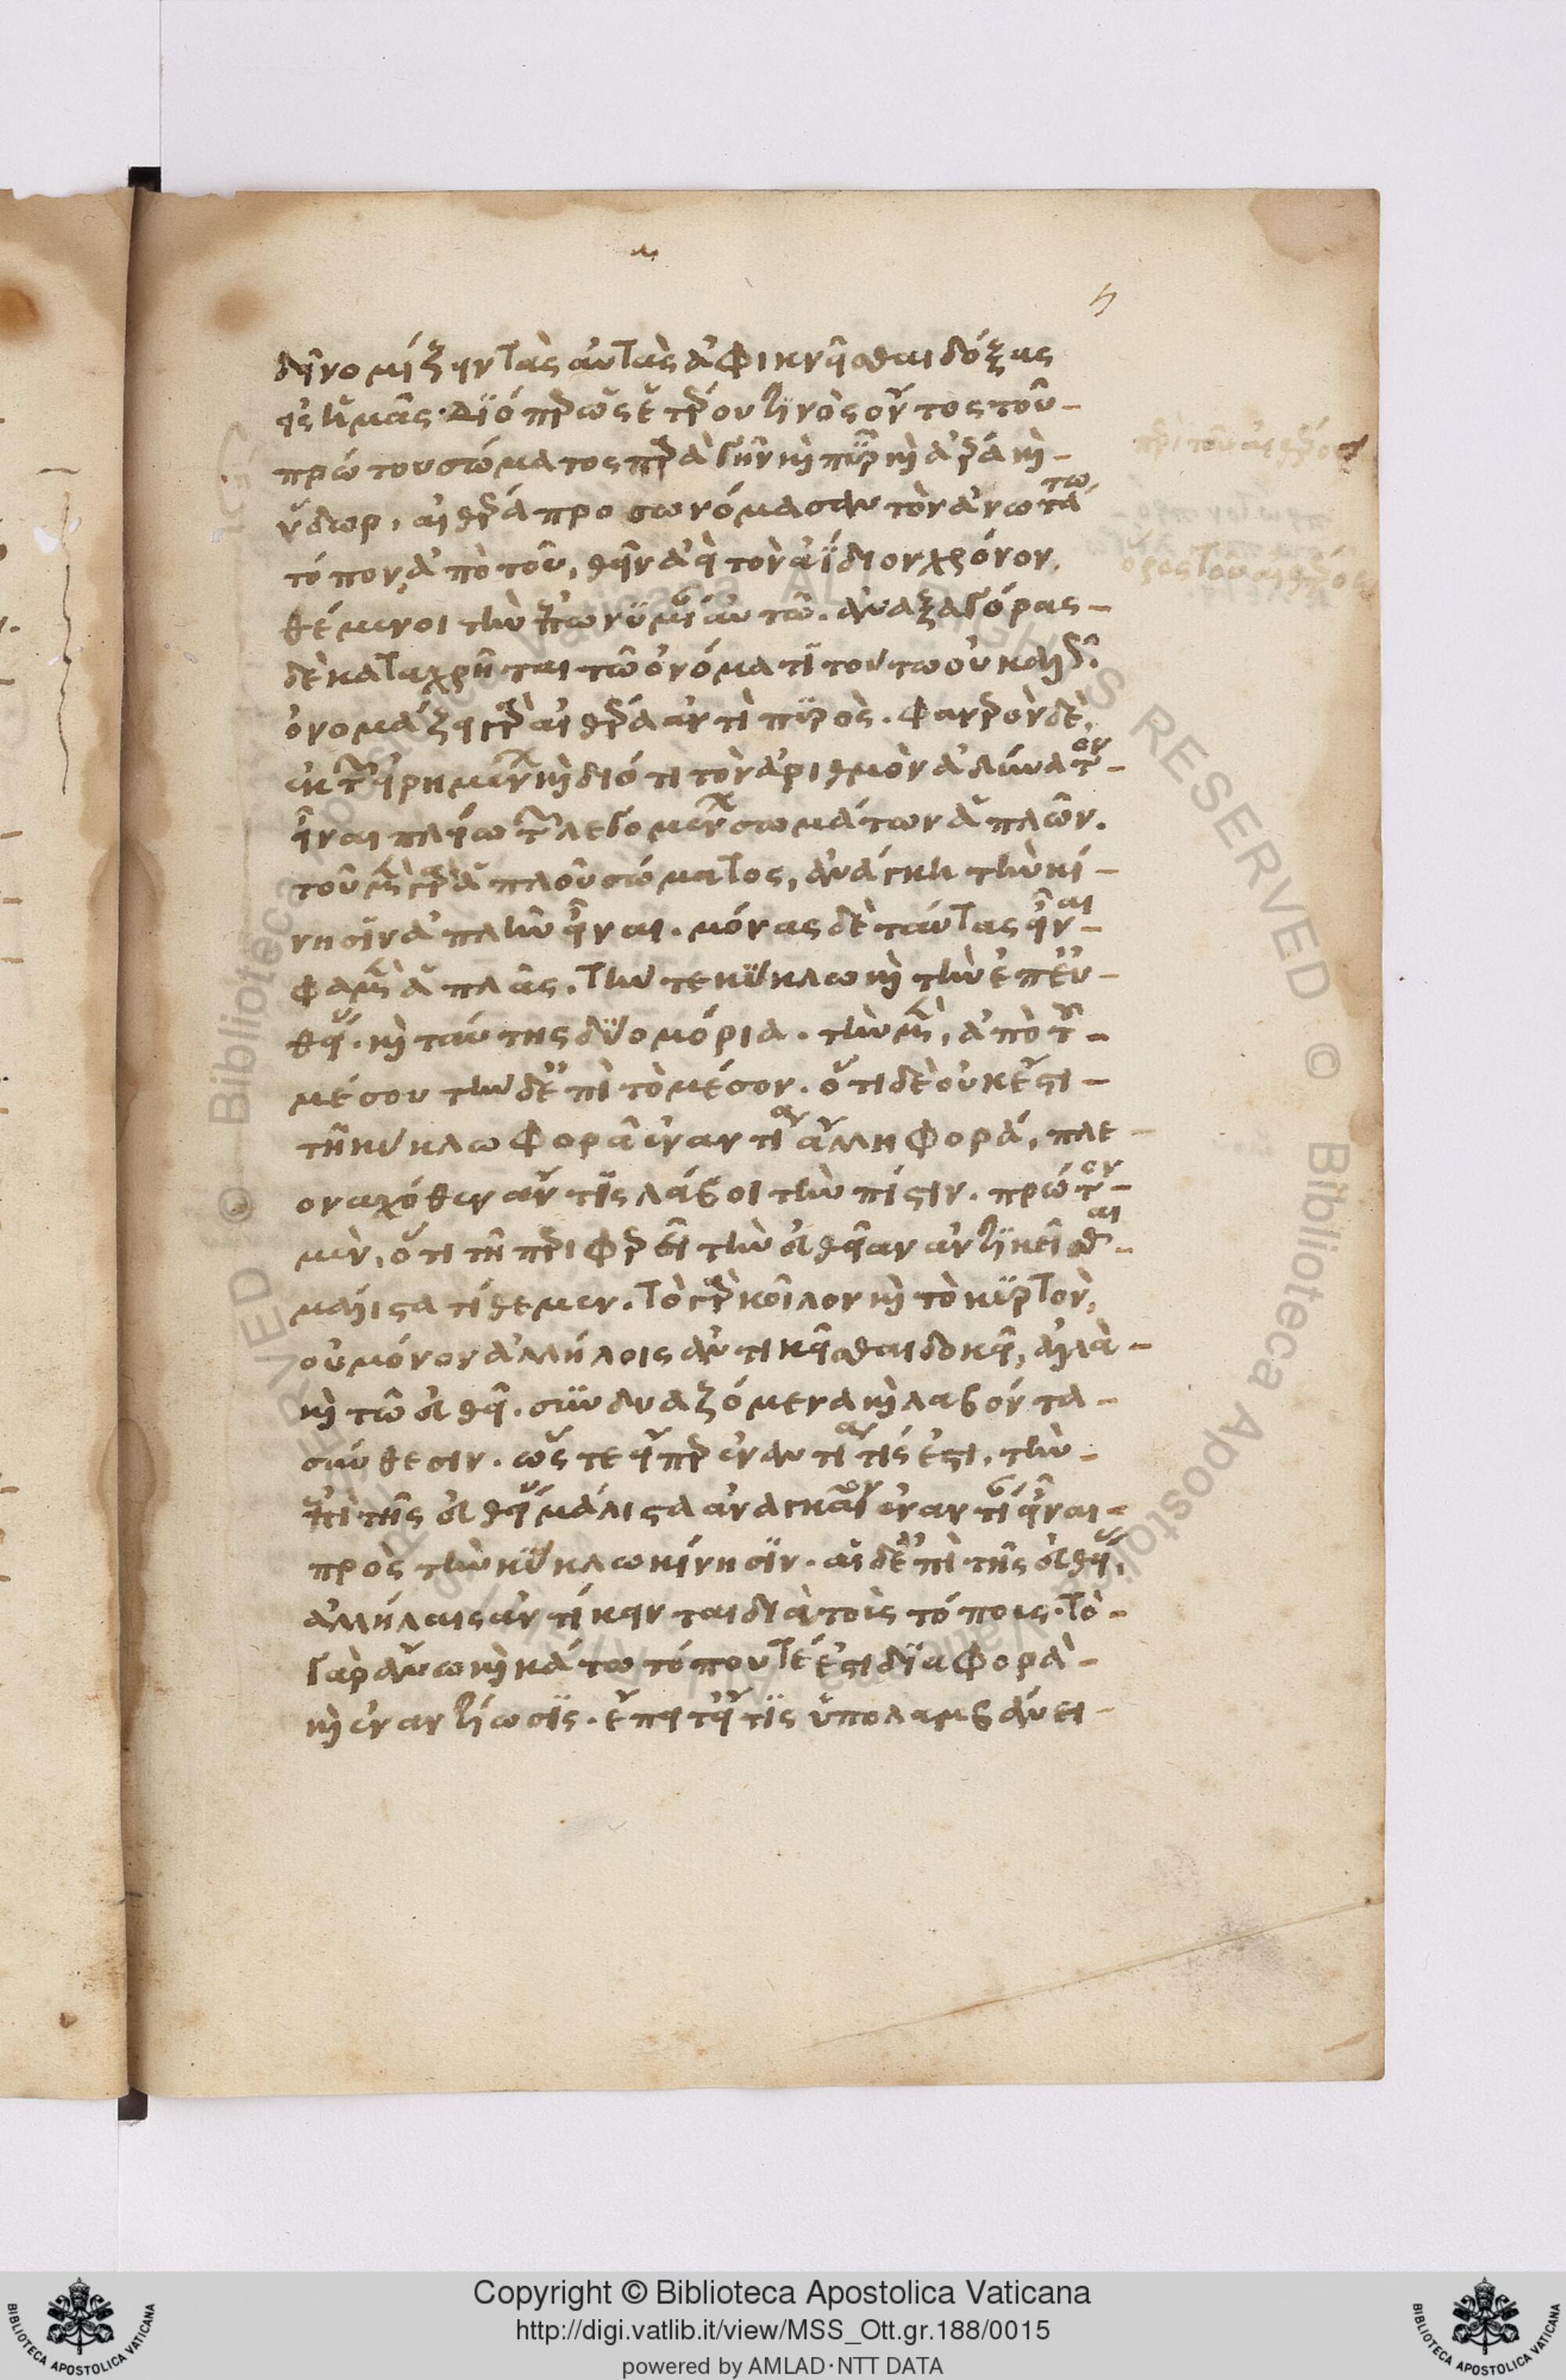 η
δεῖ νομίζειν τὰς αὐτὰς ἀφικνεῖσθαι δόξας
εἰς ἡμᾶς· διόπερ ὡς ἑτέρου τινὸς ὄντος τοῦ
πρώτου σώματος παρὰ γῆν καὶ πῦρ καὶ ἀέρα καὶ
ὕδωρ, αἰθέρα προσωνόμασαν τὸν ἀνωτάτω
τόπον, ἀπὸ τοῦ, θεῖν ἀεὶ τὸν ἀΐδιον χρόνον,
θέμενοι τὴν ἐπωνυμίαν αὐτῶ. ἀναξαγόρας
δὲ καταχρῆται τῶ ὀνόματι τούτω οὐ καλῶς·
ὀνομάζει γὰρ αἰθέρα ἀντὶ πυρός. φανερὸν δὲ,
ἐκ τῶν εἰρημένων καὶ διότι τὸν ἀριθμὸν ἀδύνατον
εἶναι πλείω τῶν λεγομένων σωμάτων ἁπλῶν.
τοῦ μὲν γὰρ ἁπλοῦ σώματος, ἀνάγκη τὴν κί
νησιν ἁπλῆν εἶναι. μόνας δὲ ταύτας εἶναι
φαμὲν ἁπλᾶς. τήν τε κύκλω καὶ τὴν ἐπ' εὐ
θείας. καὶ ταύτης δύο μόρια. τὴν μὲν, ἀπὸ τοῦ
μέσου τὴν δ' ἐπὶ τὸ μέσον. ὅτι δὲ οὐκ ἔστι
τῆ κύκλω φορᾶ ἐναντία ἄλλη φορά, πλε
οναχόθεν ἄν τις λάβοι τὴν πίστιν. πρῶτον
μὲν, ὅτι τῆ περιφερεῖ τὴν εὐθεῖαν ἀντικεῖσθαι
μάλιστα τίθεμεν. τὸ γὰρ κοῖλον καὶ τὸ κυρτὸν,
οὐ μόνον ἀλλήλοις ἀντικεῖσθαι δοκεῖ, ἀλλὰ
καὶ τῶ εὐθεῖ. συνδυαζόμενα καὶ λαβόντα
σύνθεσιν. ὥστε εἴπερ ἐναντία τίς ἐστι, τὴν
ἐπὶ τῆς εὐθείας μάλιστα ἀναγκαῖον ἐναντίαν εἶναι
πρὸς τὴν κύκλω κίνησιν. αἱ δ' ἐπὶ τῆς εὐθείας,
ἀλλήλαις ἀντίκεινται διὰ τοὺς τόπους. τὸ
γὰρ ἄνω καὶ κάτω τόπου τέ ἐστι διαφορὰ
καὶ ἐναντίωσις. ἔπειτ' εἴ τις ὑπολαμβάνει
περὶ τοῦ αἰθέρος
ὅρος τοῦ αἰθέρος
Copyright © Biblioteca Apostolica Vaticana
http://digi.vatlib.it/view/MSS_Ott.gr.188/0015
powered by AMLAD·NTT DATA
BIBLIOTECA APOSTOLICA VATICANA
BIBLIOTECA APOSTOLICA VATICANA